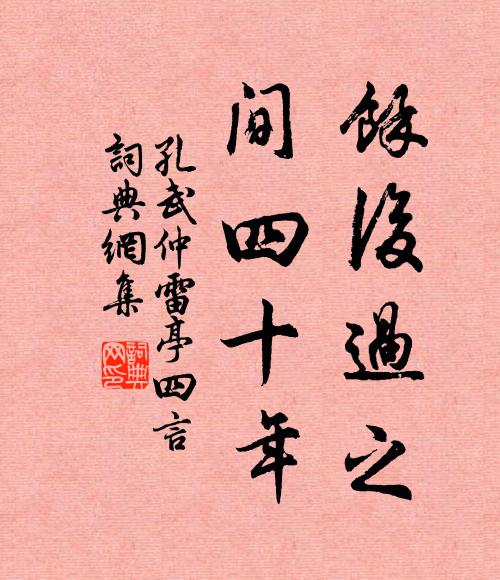 餘後過之
間四十年
孔武仲雷亭四言
詞典網集
詞典网印